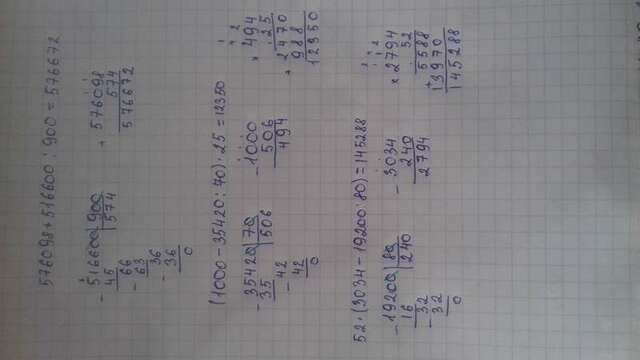 576098+516600:900=576672
- 516600 | 900
45 | 574
- 66
63
- 36
36
0
+ 576098
574
576672
(1000-35420:70)·25=12350
- 35420 | 70
35 | 506
- 42
42
0
- 1000
506
494
× 494
25
+ 2470
988
12350
52·(3034-19200:80)=145288
- 19200 | 80
16 | 240
- 32
32
0
- 3034
240
2794
× 2794
52
+ 5588
13970
145288